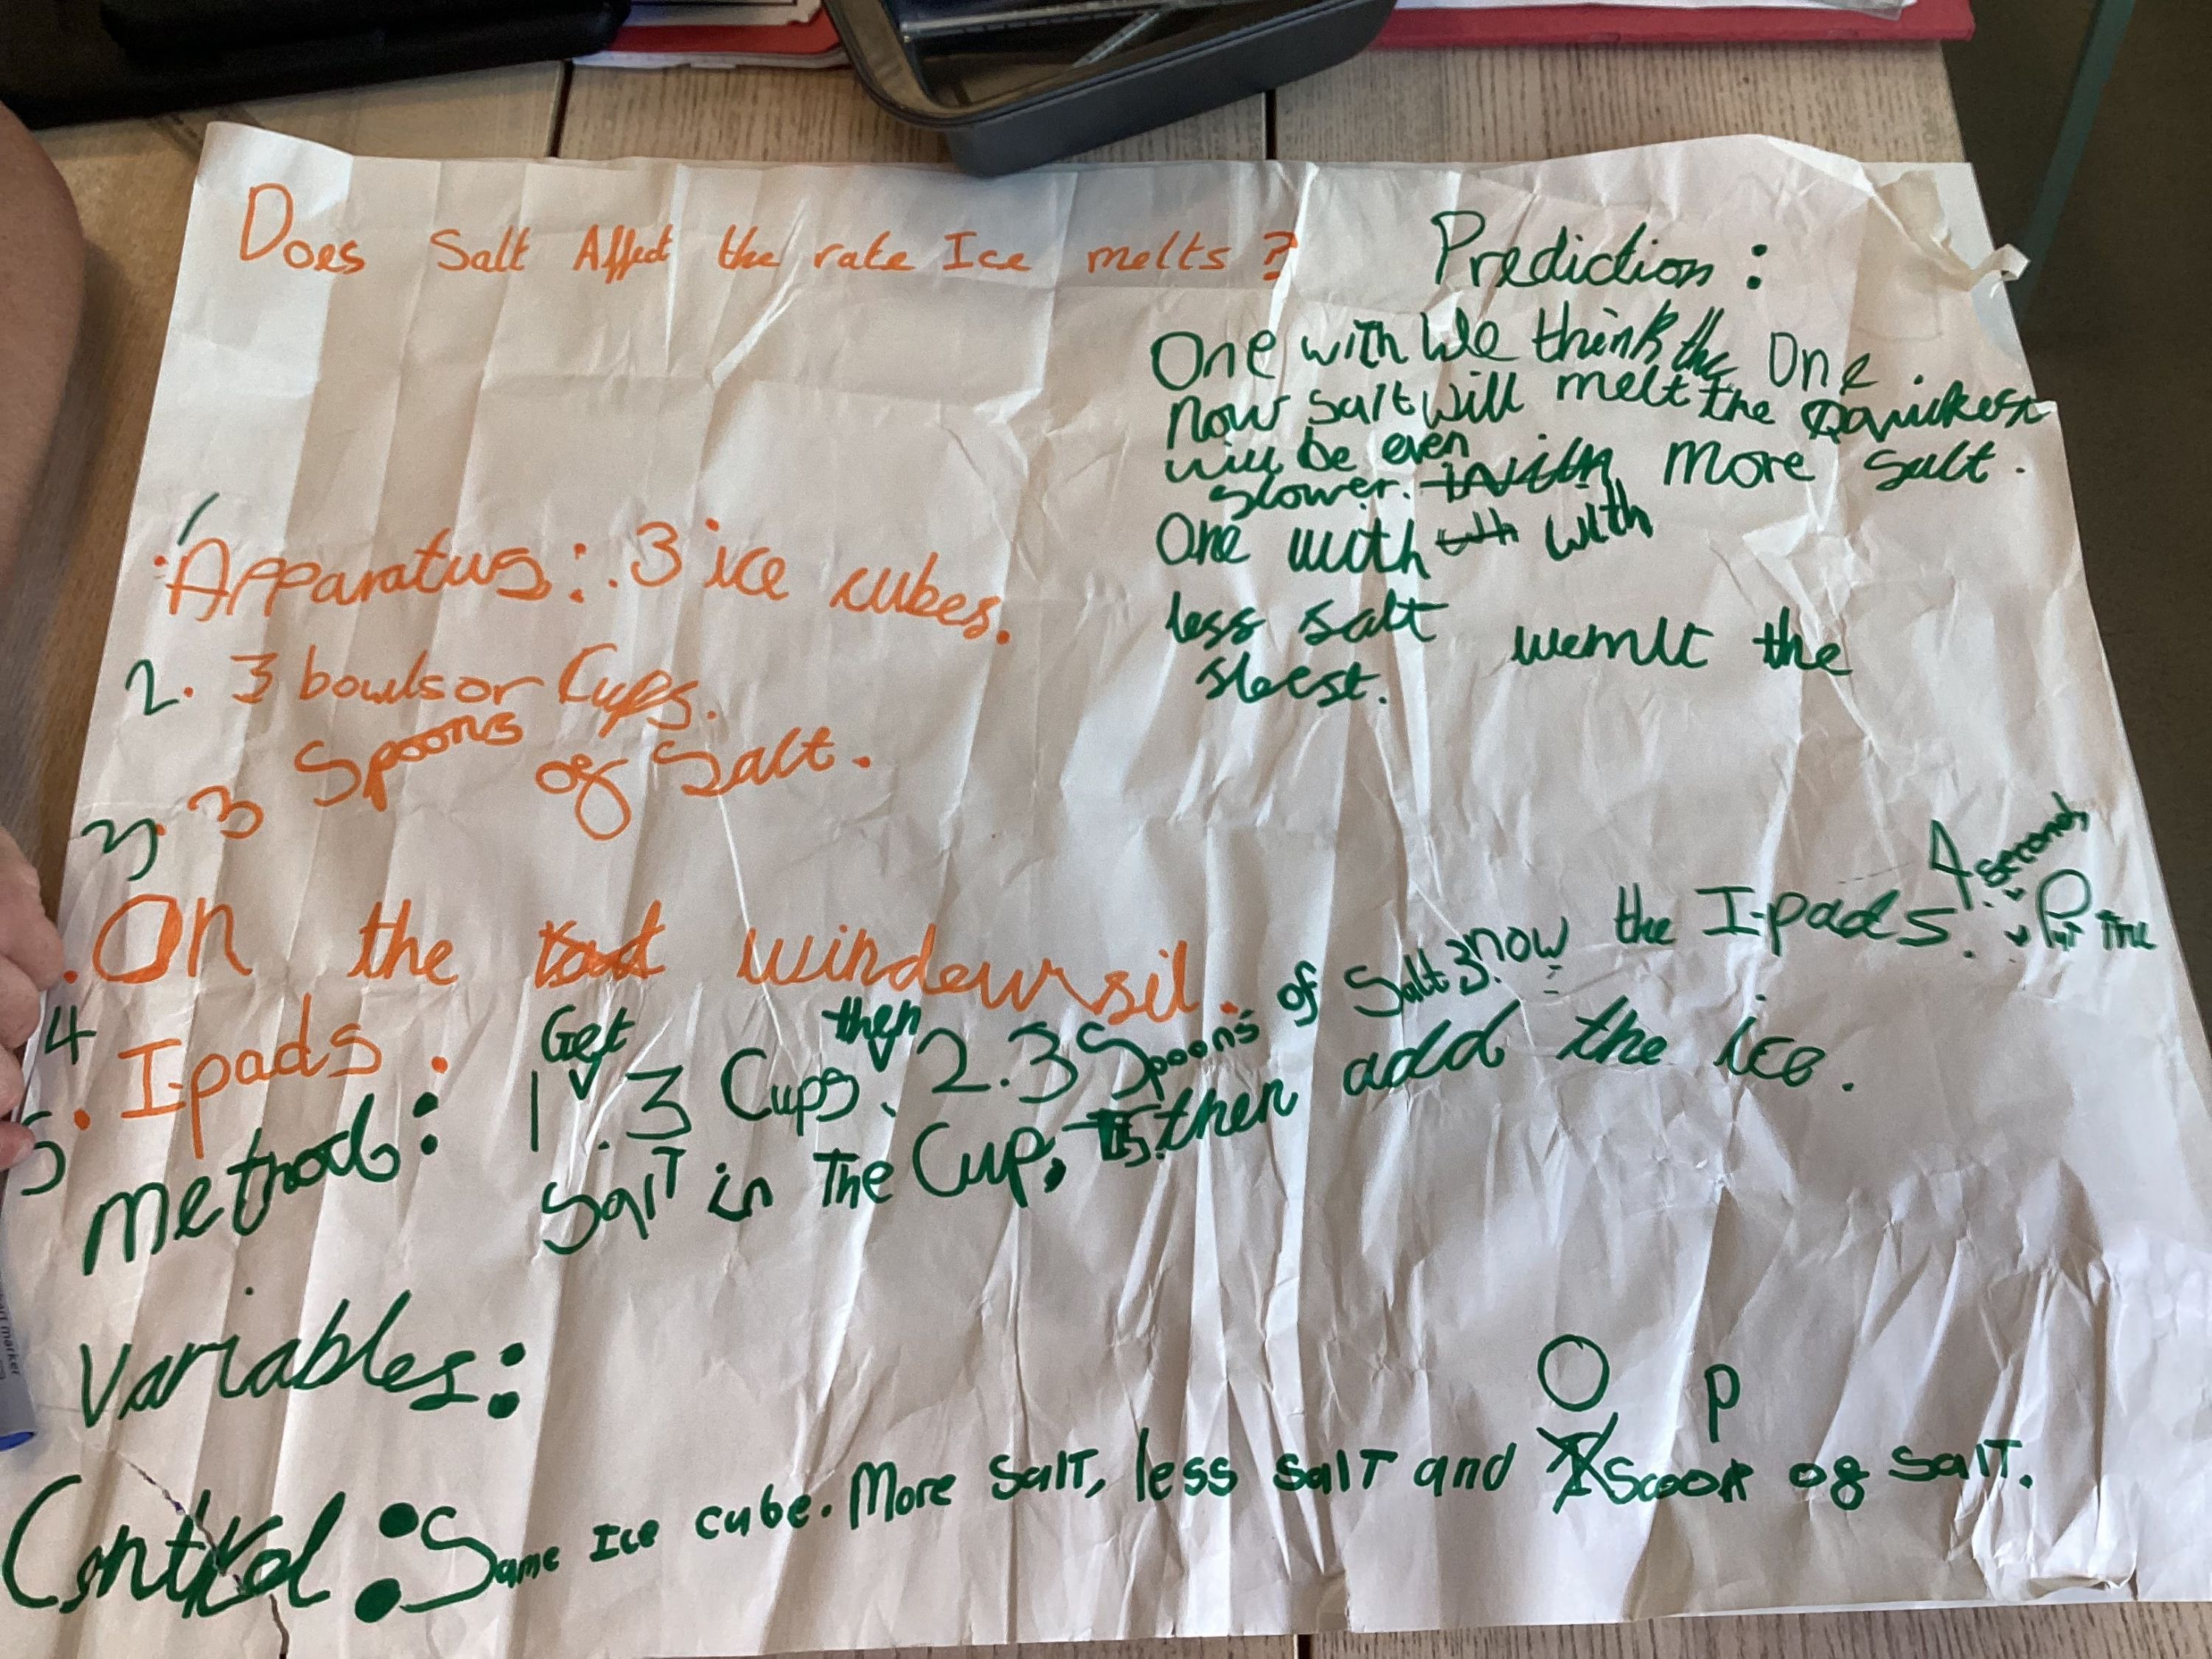 Does Salt Affect the rate Ice melts?
Prediction:
One with We think the One
now salt will melt the Qquikest
will be even more salt.
slower. with
One with with
less salt wemlt the
sleest.
1
. Apparatus: . 3 ice cubes.
2. 3 bowls or Cups.
3. 3 Spoons of Salt.
. On the windewsil.
4
. I-pads.
5
Method: 1. Get 3 Cups. then 2. 3 Spoons of Salt 3. now the I-pads. 4 seconds Put the
Salt in the Cup, 5. then add the ice.
Variables:
O p
Control: Same Ice cube. More salt, less salt and scook og salt.